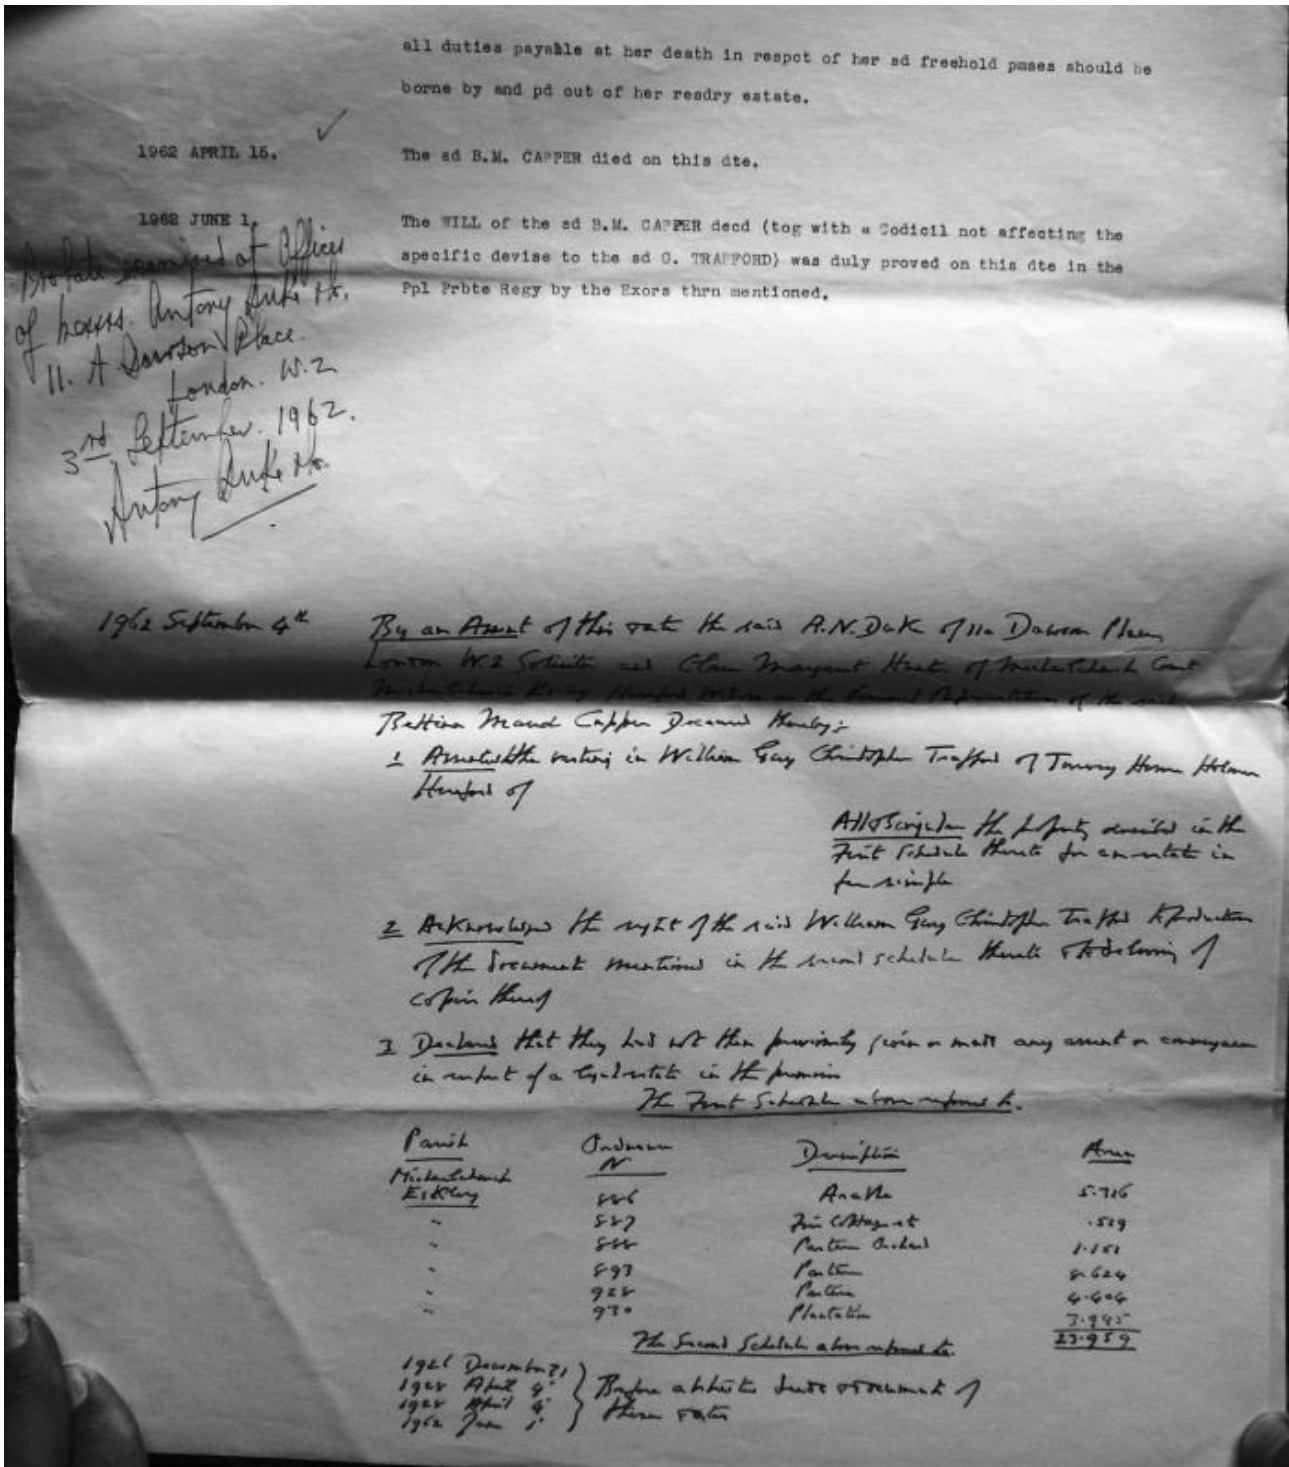 all duties payable at her death in respct of her sd freehold pmses should be
borne by and pd out of her resdry estate.
1962 APRIL 15.
The sd B.M. CAPPER died on this dte.
1962 JUNE 1.
The WILL of the sd B.M. CAPPER decd (tog with a Codicil not affecting the
specific devise to the sd G. TRAFFORD) was duly proved on this dte in the
Ppl Prbte Regy by the Exors thrn mentioned.
Probate examined at Offices
of Antony Duke
11. A Dawson Place.
London. W.2
3rd September. 1962.
Antony Duke
1962 September 4th
By an Assent of this date the said A.N. Duke of 11a Dawson Place
London W2 Solicitor and Margaret of Michaelchurch Court
Michaelchurch Hereford the Personal Representatives of the said
Bettina Maud Capper Deceased thereby:-
1 Assented to the vesting in William Guy Christopher Trafford of House
Hereford of
the property described in the
First Schedule thereto for an estate in
fee simple
2 Acknowledged the right of the said William Guy Christopher Trafford to production
of the documents mentioned in the second schedule thereto & to delivery of
copies thereof
3 Declared that they had not then previously given or made any assent or conveyance
in respect of a legal estate in the premises
The First Schedule above referred to.
Parish
Ordnance
No
Description
Area
Michaelchurch
Eskley
886
Arable
5.716
" 887
.519
" 888
Pasture Orchard
1.151
" 893
Pasture
8.624
" 928
Pasture
4.404
" 930
Plantation
3.945
23.959
The Second Schedule above referred to.
December
1928 April 4
1928 April 4
1962 June 1
Before abstracted deeds & documents of
these dates